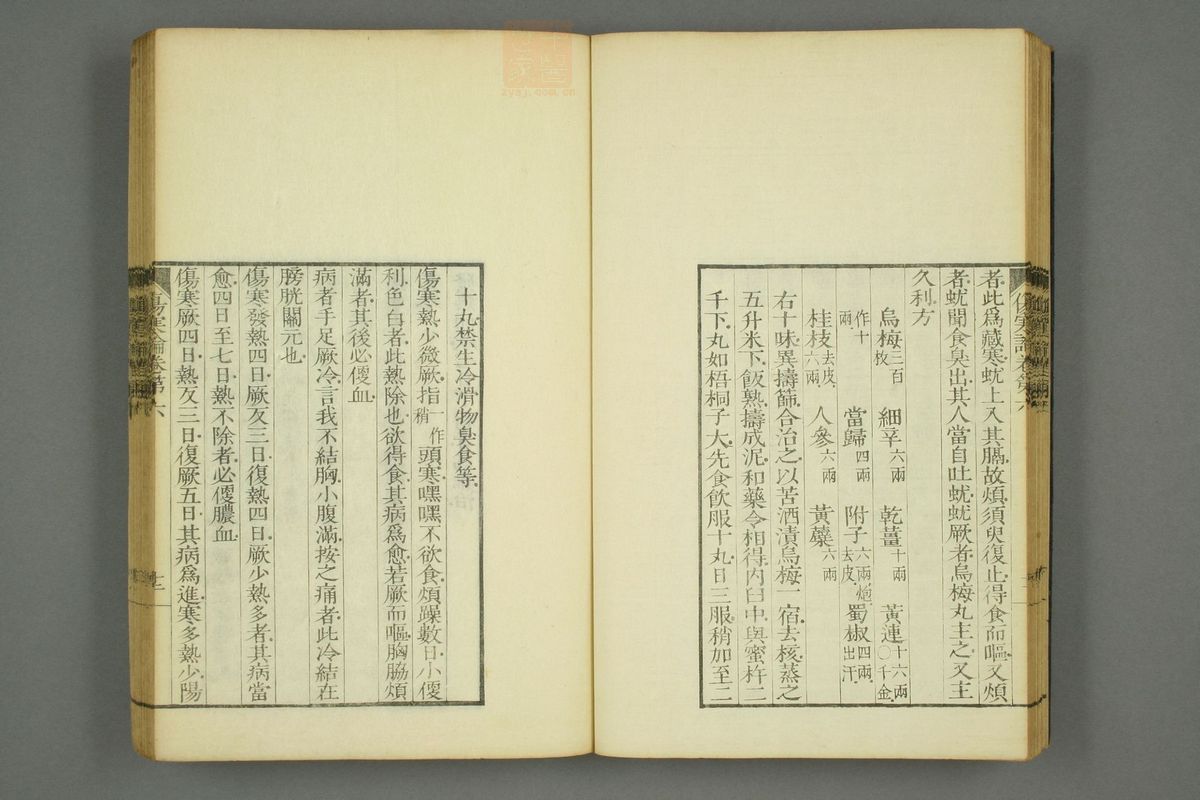 者此爲藏寒蚘上入其膈故煩須臾復止得食而嘔又煩
者蚘聞食臭出其人當自吐蚘蚘厥者烏梅丸主之又主
久利方
烏梅三百枚 細辛六兩 乾薑十兩 黃連十六兩〇千金
作十兩 當歸四兩 附子六兩炮去皮 蜀椒四兩出汗
桂枝去皮六兩 人參六兩 黃蘗六兩
右十味異擣篩合治之以苦酒漬烏梅一宿去核蒸之
五升米下飯熟擣成泥和藥令相得內臼中與蜜杵二
千下丸如梧桐子大先食飮服十丸日三服稍加至二
十丸禁生冷滑物臭食等
傷寒熱少微厥指一作稍頭寒嘿嘿不欲食煩躁數日小便
利色白者此熱除也欲得食其病爲愈若厥而嘔胸脇煩
滿者其後必便血
病者手足厥冷言我不結胸小腹滿按之痛者此冷結在
膀胱關元也
傷寒發熱四日厥反三日復熱四日厥少熱多者其病當
愈四日至七日熱不除者必便膿血
傷寒厥四日熱反三日復厥五日其病爲進寒多熱少陽
傷寒論卷第六
zysj.com.cn